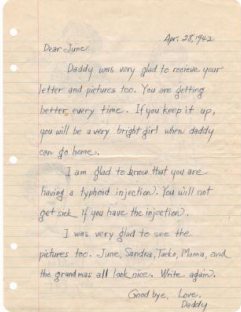 Apr. 28, 1942
Dear June
Daddy was very glad to recieve your
letter and pictures too. You are getting
better every time. If you keep it up,
you will be a very bright girl when daddy
can go home.
I am glad to know that you are
having a typhoid injection. You will not
get sick if you have the injection.
I was very glad to see the
pictures too. June, Sandra, Mama, and
the grandmas all look nice. Write again.
Good bye, Love,
Daddy